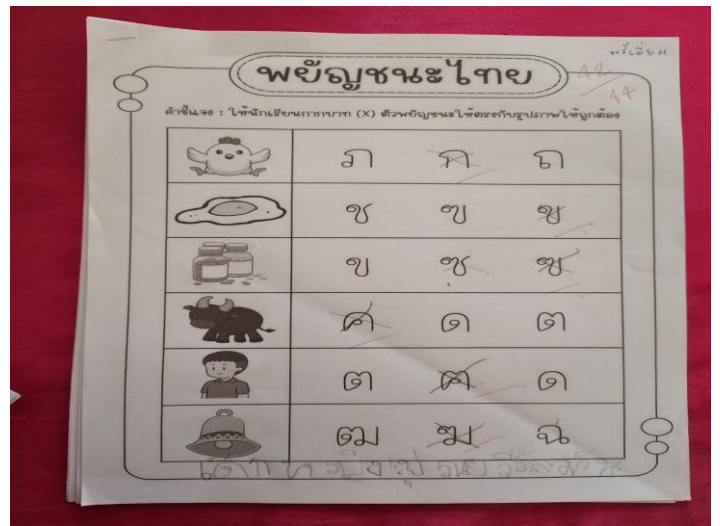 พรีเมี่ยม
พยัญชนะไทย
42
44
คำชี้แจง : ให้นักเรียนกากบาท (X) ตัวพยัญชนะให้ตรงกับรูปภาพให้ถูกต้อง
ภ ก ถ
ช ฃ ข
ข ซ ฃ
ค ด ต
ต ฅ ด
ฒ ฆ ฉ